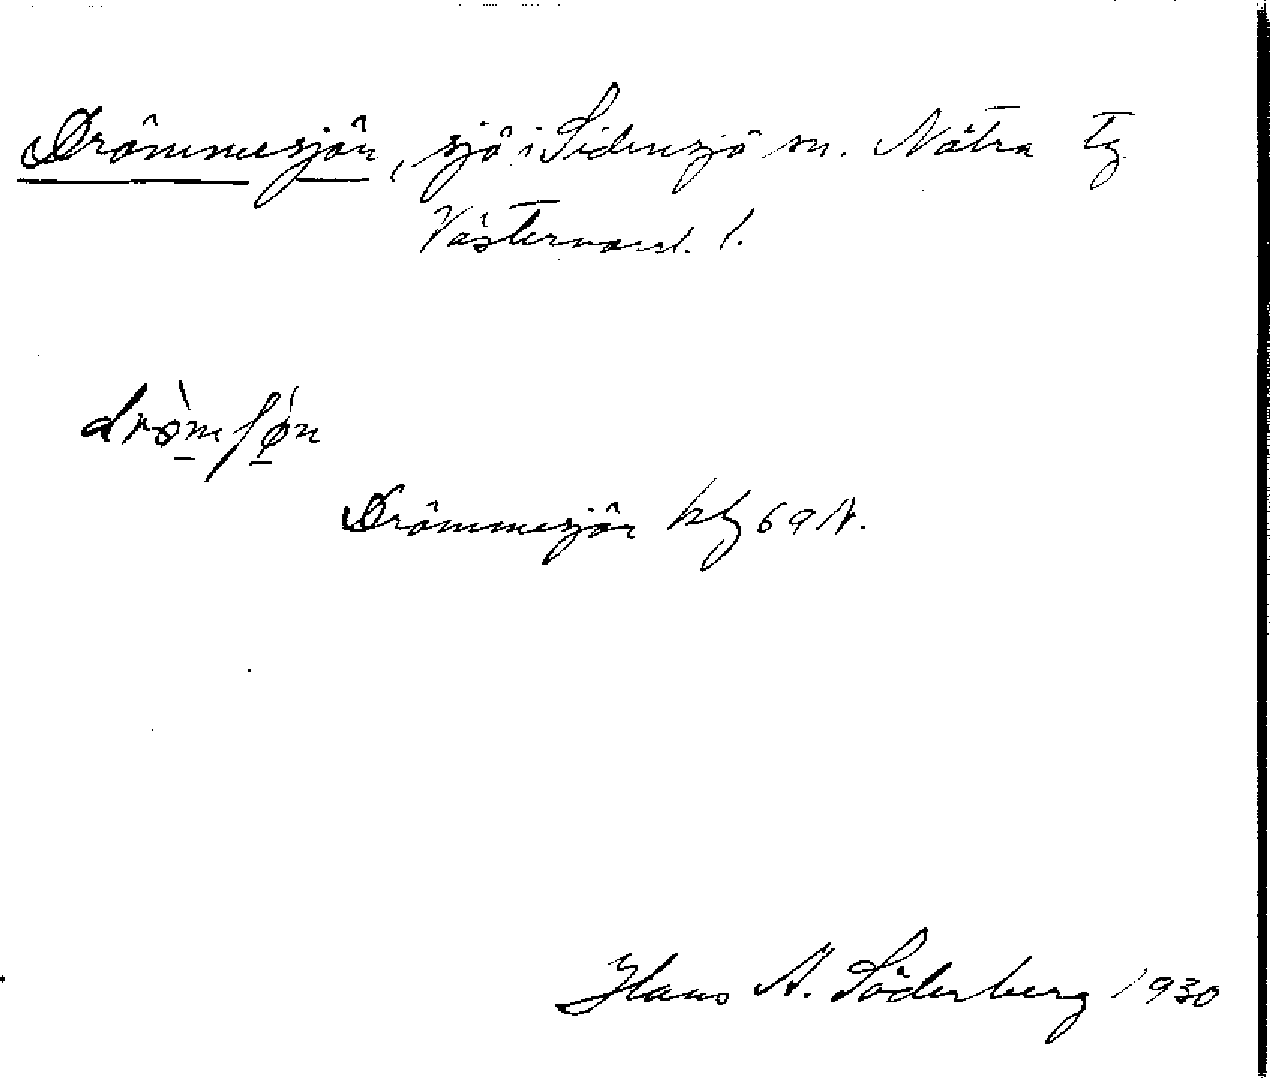 Drömmesjön, sjö i Sidensjö sn. Nätra tg
Västernorrl. l.
Drömmesjön kbl 69 N.
Hans A. Söderberg 1930